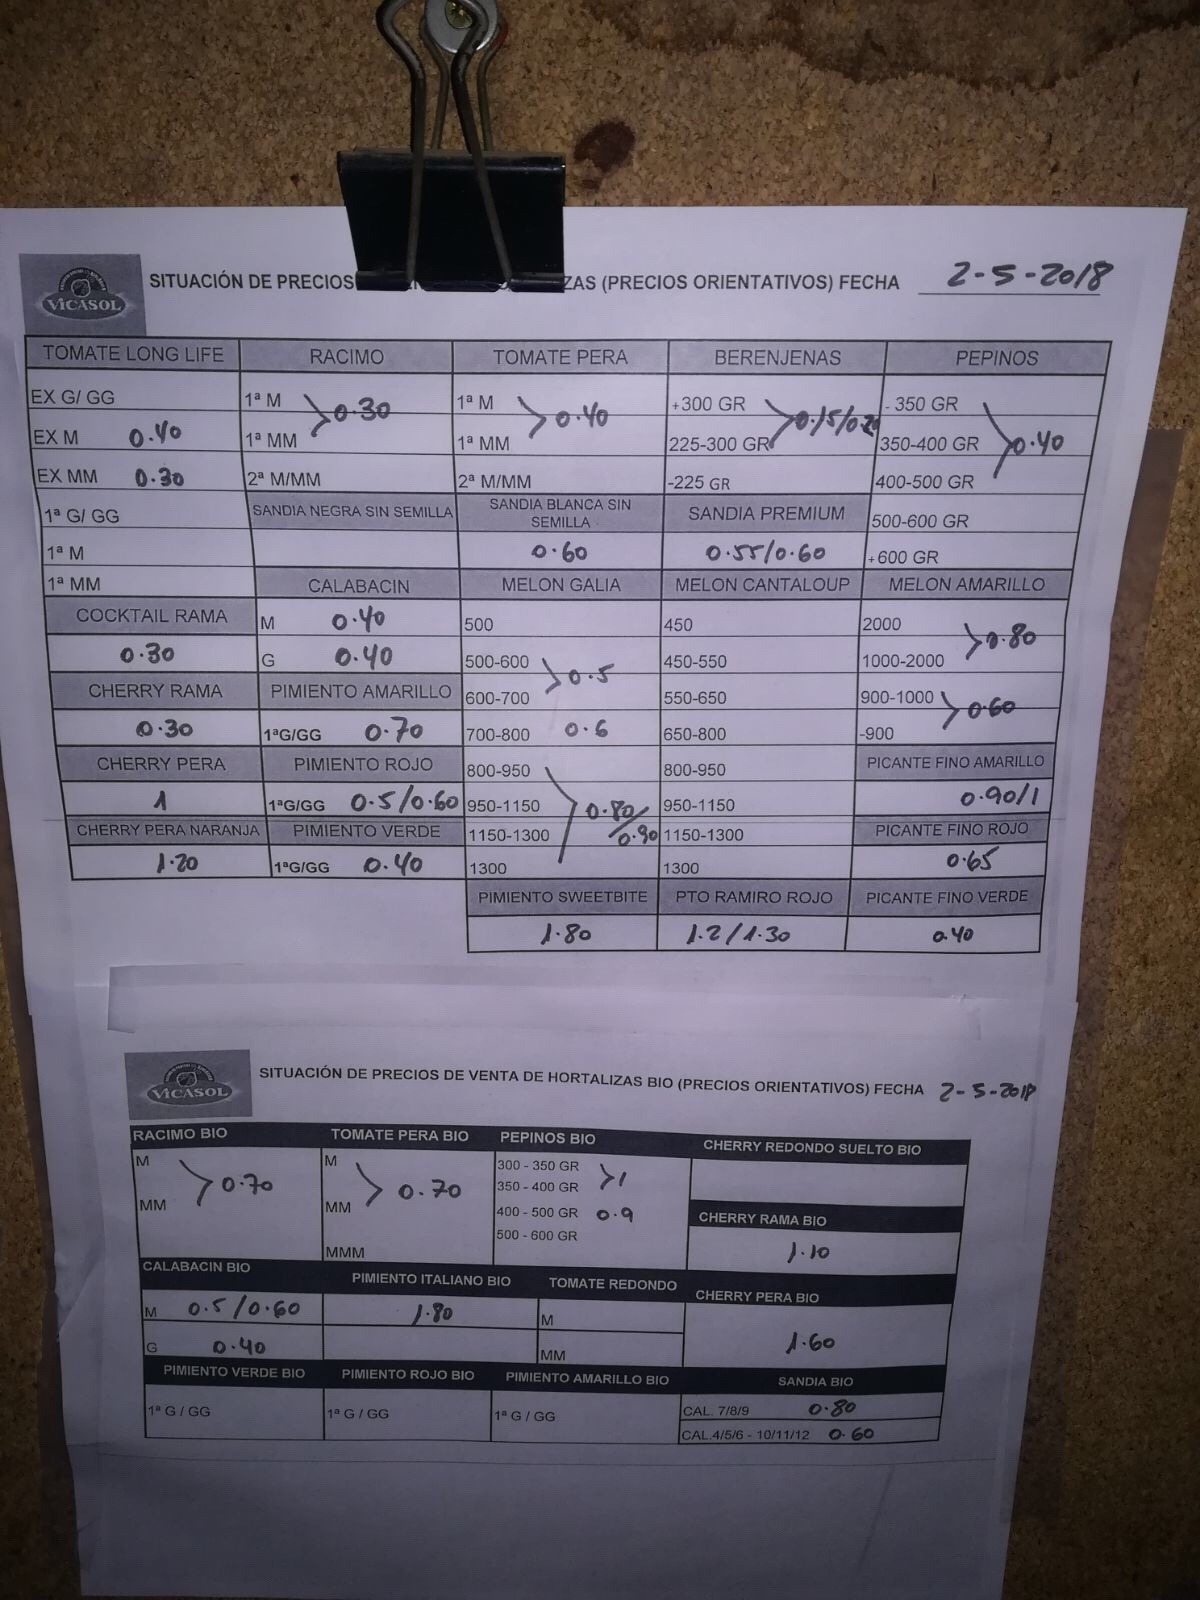 VICASOL
SITUACIÓN DE PRECIOS ZAS (PRECIOS ORIENTATIVOS) FECHA 2-5-2018
TOMATE LONG LIFE
EX G/ GG
EX M 0.40
EX MM 0.30
1ª G/ GG
1ª M
1ª MM
COCKTAIL RAMA
0.30
CHERRY RAMA
0.30
CHERRY PERA
1
CHERRY PERA NARANJA
1.20
RACIMO
1ª M
1ª MM
0.30
2ª M/MM
SANDIA NEGRA SIN SEMILLA
CALABACIN
M 0.40
G 0.40
PIMIENTO AMARILLO
1ªG/GG 0.70
PIMIENTO ROJO
1ªG/GG 0.5/0.60
PIMIENTO VERDE
1ªG/GG 0.40
TOMATE PERA
1ª M
1ª MM
0.40
2ª M/MM
SANDIA BLANCA SIN
SEMILLA
0.60
MELON GALIA
500
500-600
600-700
0.5
700-800 0.6
800-950
950-1150
1150-1300
1300
0.80/
0.90
PIMIENTO SWEETBITE
1.80
BERENJENAS
+300 GR
225-300 GR
0.15/0.20
-225 GR
SANDIA PREMIUM
0.55/0.60
MELON CANTALOUP
450
450-550
550-650
650-800
800-950
950-1150
1150-1300
1300
PTO RAMIRO ROJO
1.2/1.30
PEPINOS
- 350 GR
350-400 GR
400-500 GR
0.40
500-600 GR
+600 GR
MELON AMARILLO
2000
1000-2000
0.80
900-1000
-900
0.60
PICANTE FINO AMARILLO
0.90/1
PICANTE FINO ROJO
0.65
PICANTE FINO VERDE
0.40
VICASOL
SITUACIÓN DE PRECIOS DE VENTA DE HORTALIZAS BIO (PRECIOS ORIENTATIVOS) FECHA 2-5-2018
RACIMO BIO
M
MM
0.70
TOMATE PERA BIO
M
MM
0.70
MMM
PEPINOS BIO
300 - 350 GR
350 - 400 GR
1
400 - 500 GR 0.9
500 - 600 GR
CHERRY REDONDO SUELTO BIO
CHERRY RAMA BIO
1.10
CALABACIN BIO
M 0.5/0.60
G 0.40
PIMIENTO ITALIANO BIO
1.80
TOMATE REDONDO
M
MM
CHERRY PERA BIO
1.60
PIMIENTO VERDE BIO
1ª G / GG
PIMIENTO ROJO BIO
1ª G / GG
PIMIENTO AMARILLO BIO
1ª G / GG
SANDIA BIO
CAL. 7/8/9 0.80
CAL.4/5/6 - 10/11/12 0.60